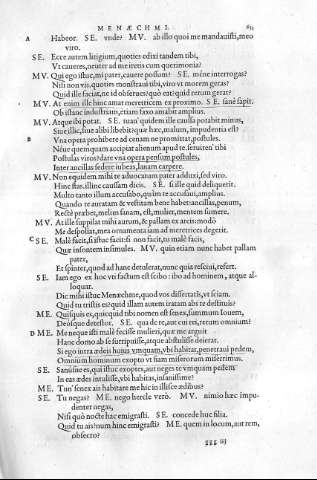 MENÆCHMI. 
A Habeor. SE. unde? MV. ab illo quoi me mandavisti, meo
viro.
SE. Ecce autem litigium, quoties edixi tandem tibi,
Vt caveres, neuter ad me iretis cum querimonia?
MV. Qui ego istuc, mi pater, cavere possum? SE. mene interrogas?
Nisi non vis, quoties monstravi tibi, viro ut morem geras?
Quid ille faciat, ne id observes? quò eat? quid rerum gerat?
MV. At enim ille hinc amat meretricem ex proximo. SE. sanè sapit.
Ob istanc industriam, etiam faxo amabit amplius.
MV. Atque ibi potat. SE. tuan' quidem ille causa potabit minus,
Siue illic, siue alibi libebit? quæ hæc, malum, impudentia est?
B Vna opera prohibere ad cenam ne promittat, postules.
Néue quenquam accipiat alienum apud te, seruiren' tibi
Postulas viros? dare vna opera pensum postules,
Inter ancillas sedere iubeas, lanam carpere.
MV. Non equidem mihi te advocatum pater adduxi, sed viro.
Hinc stas, illinc causam dicis. SE. si ille quid deliquerit,
Multo tanto illum accusabo, quàm te accusaui, amplius.
Quando te auratam & vestitam bene habet, ancillas, penum,
Rectè præbet, melius sanam, est, mulier, mentem sumere.
MV. At ille suppilat mihi aurum, & pallam ex arcis modò
Me despoliat, mea ornamenta iam ad meretrices degerit.
C SE. Malè facit, si istuc facit: si non facit, tu malè facis,
Quæ insontem insimules. MV. quin etiam nunc habet pallam
pater,
Et spinter, quod ad hanc detulerat, nunc quia resciui, refert.
SE. Iam ego ex hoc vti factum est scibo: ibo ad hominem, atque al-
loquar.
Dic mihi istuc Menæchme, quod vos dissertatis, vt sciam.
Quid tu tristis es? quid illam autem iratam abs te destituis?
ME. Quisquis es, quicquid tibi nomen est senex, summum Iouem,
Deosque detestor. SE. qua de re, aut cui rei, rerum omnium?
D ME. Me neque isti malè fecisse mulieri, quæ me arguit
Hanc domo ab se surripuisse, atque abstulisse deierat.
Si ego intra ædeis huius vmquam, vbi habitat, penetraui pedem,
Omnium hominum exopto vt fiam miserorum miserrimus.
SE. Sanúsne es, qui istuc exoptes, aut neges te vmquam pedem
In eas ædes intulisse, vbi habitas, insanissime?
ME. Tun' senex ais habitare me hic in illisce ædibus?
SE. Tu negas? ME. nego hercle verò. MV. nimio hæc impu-
denter negas,
Nisi quò nocte hac emigrasti. SE. concede huc filia.
Quid tu ais? num hinc emigrasti? ME. quem in locum, aut rem,
obsecro?